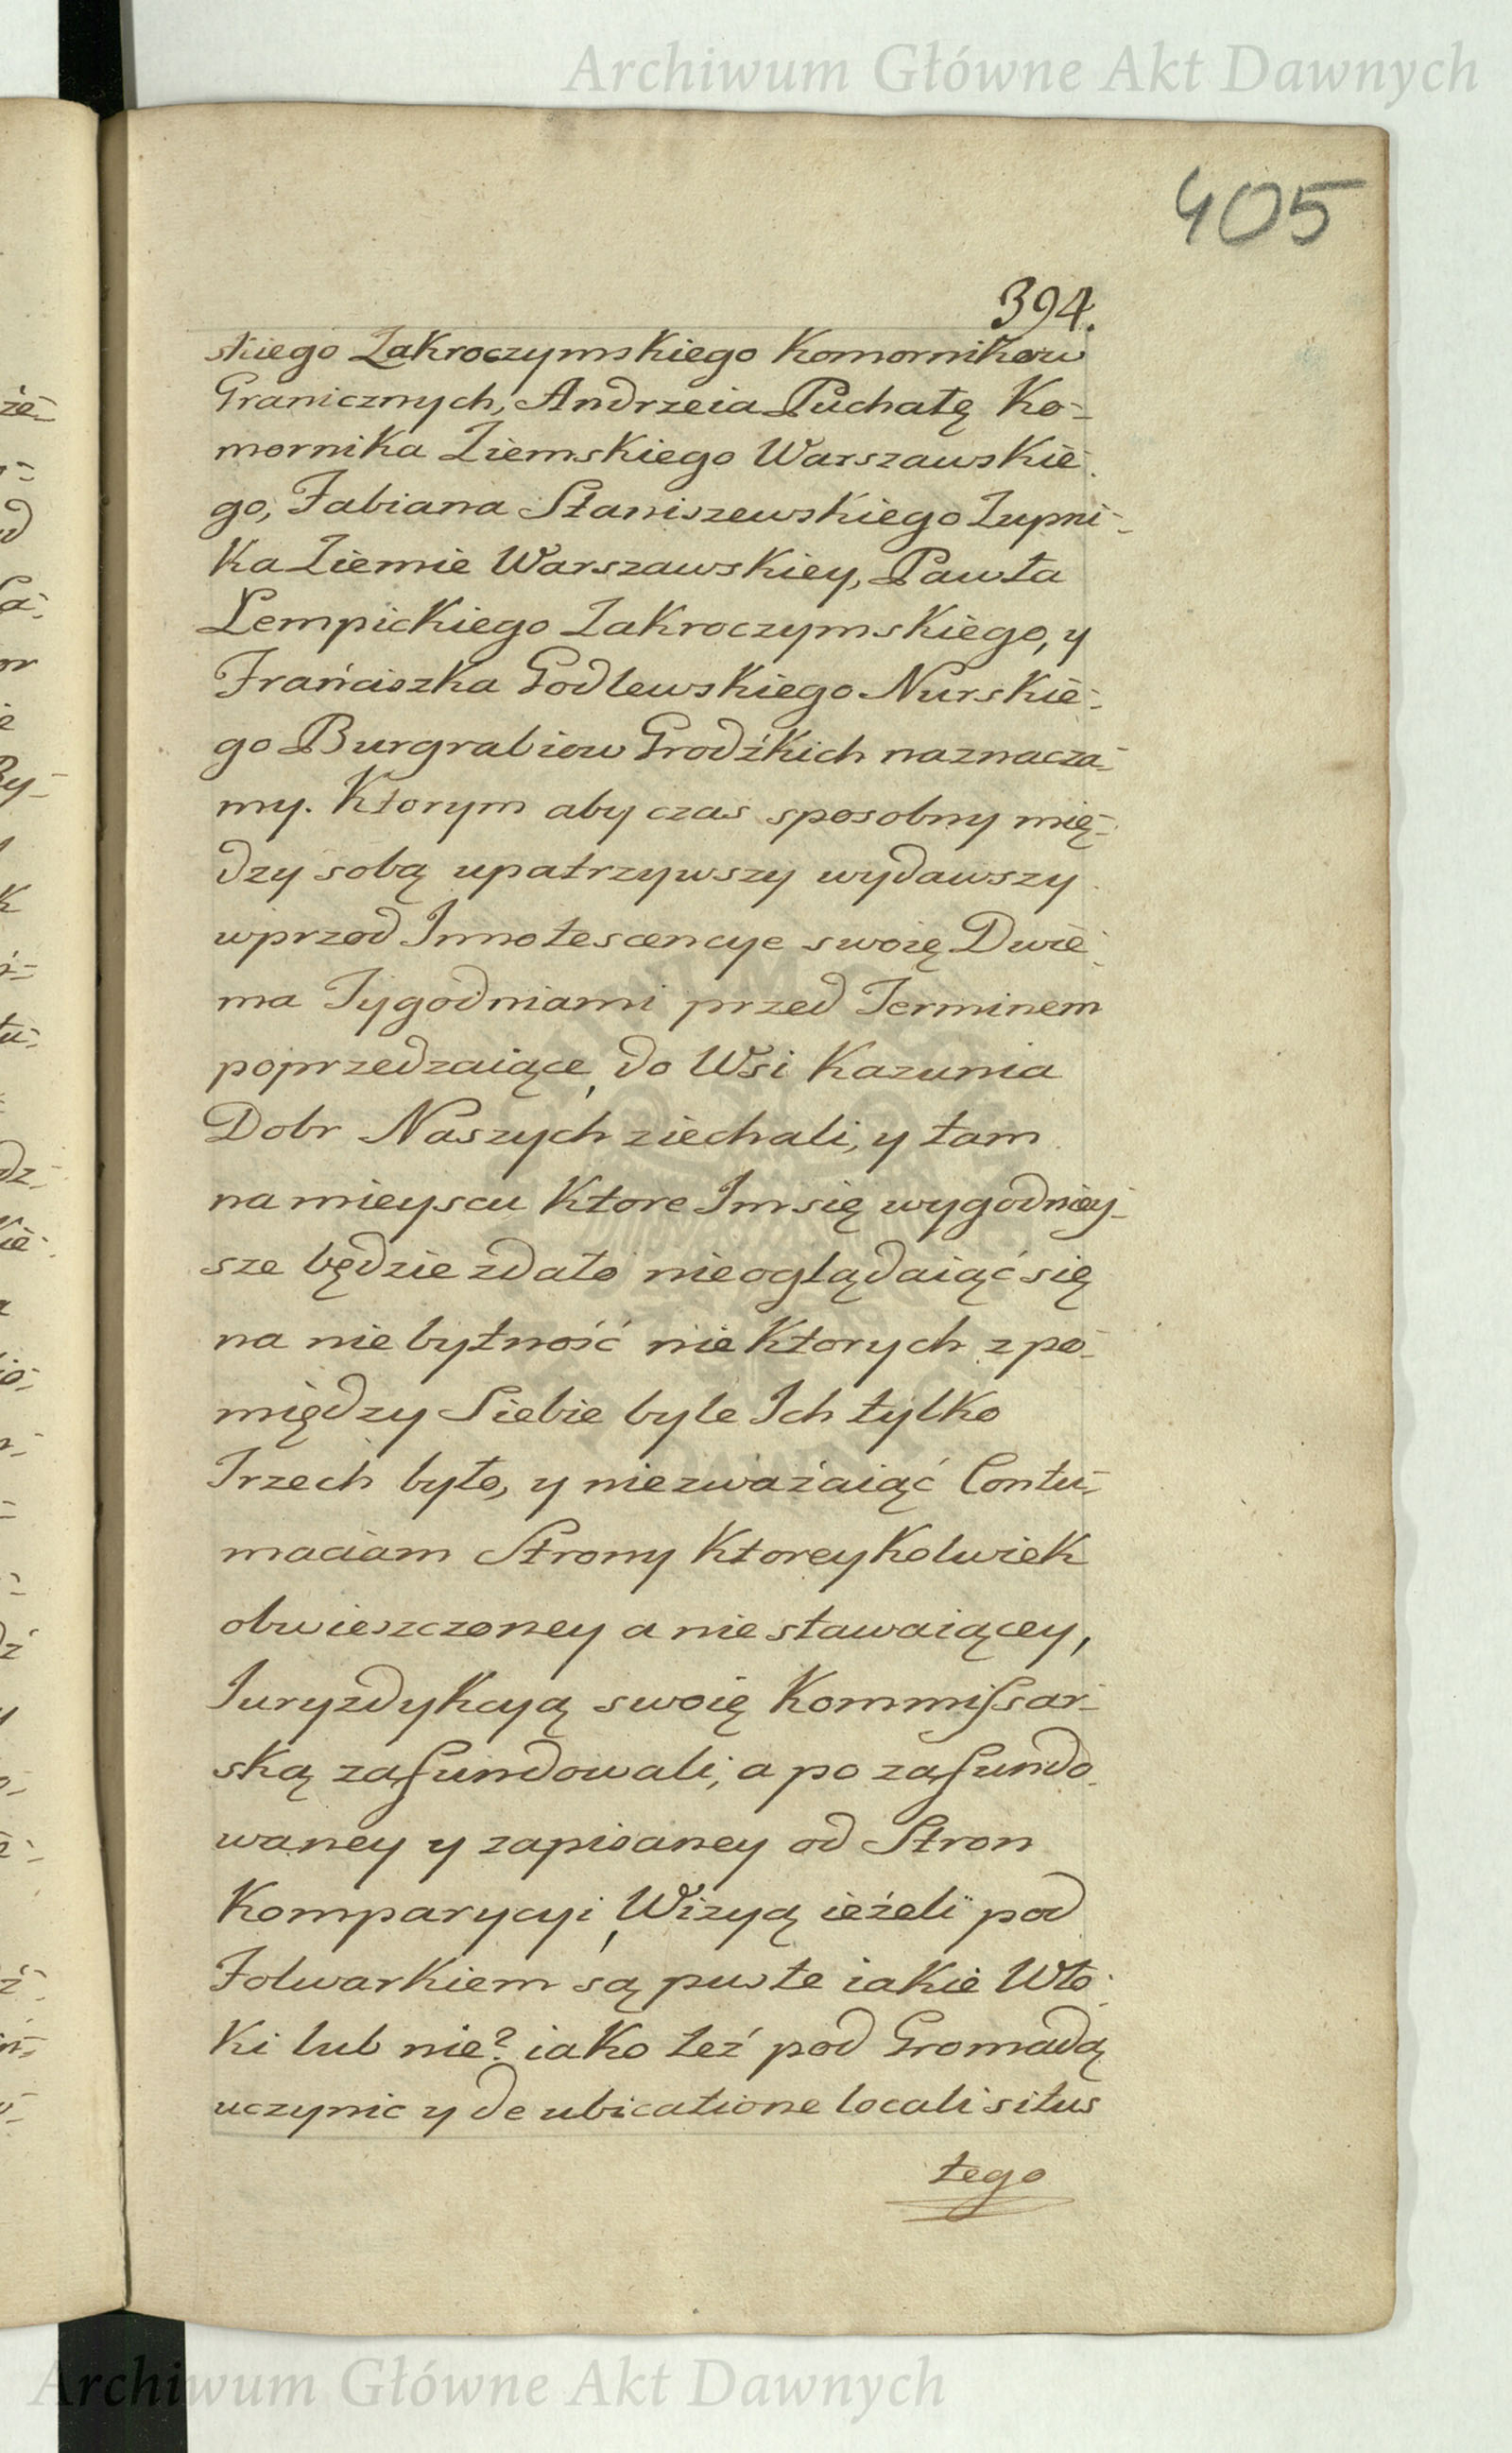 Archiwum Główne Akt Dawnych
405
394.
skiego Zakroczymskiego Komornikow
Granicznych, Andrzeia Puchałę Ko-
mornika Ziemskiego Warszawskie-
go, Fabiana Staniszewskiego Zupni-
ka Ziemie Warszawskiey, Pawła
Łempickiego Zakroczymskiego, y
Franciszka Godlewskiego Nurskie-
go Burgrabiow Grodzkich naznacza-
my. Ktorym aby czas sposobny mię-
dzy sobą upatrzywszy wydawszy
wprzod Innotescencye swoię Dwie-
ma Tygodniami przed Terminem
poprzedzaiące, do Wsi Kazunia
Dobr Naszych ziechali, y tam
na mieyscu ktore Im się wygodniey-
sze będzie zdało nieoglądaiąć się
na niebytność niektorych z po-
między Siebie byle Ich tylko
Trzech było, y niezważaiąć Contu-
maciam Strony ktoreykolwiek
obwieszczoney a niestawaiącey,
Juryzdykcyą swoię Kommissar-
ską zafundowali, a po zafundo-
waney y zapisaney od Stron
Komparycyi, Wizyą ieżeli pod
Folwarkiem są puste iakie Wło-
ki lub nie? iako też pod Gromadą
uczynic y de ubicatione locali situs
tego
Archiwum Główne Akt Dawnych